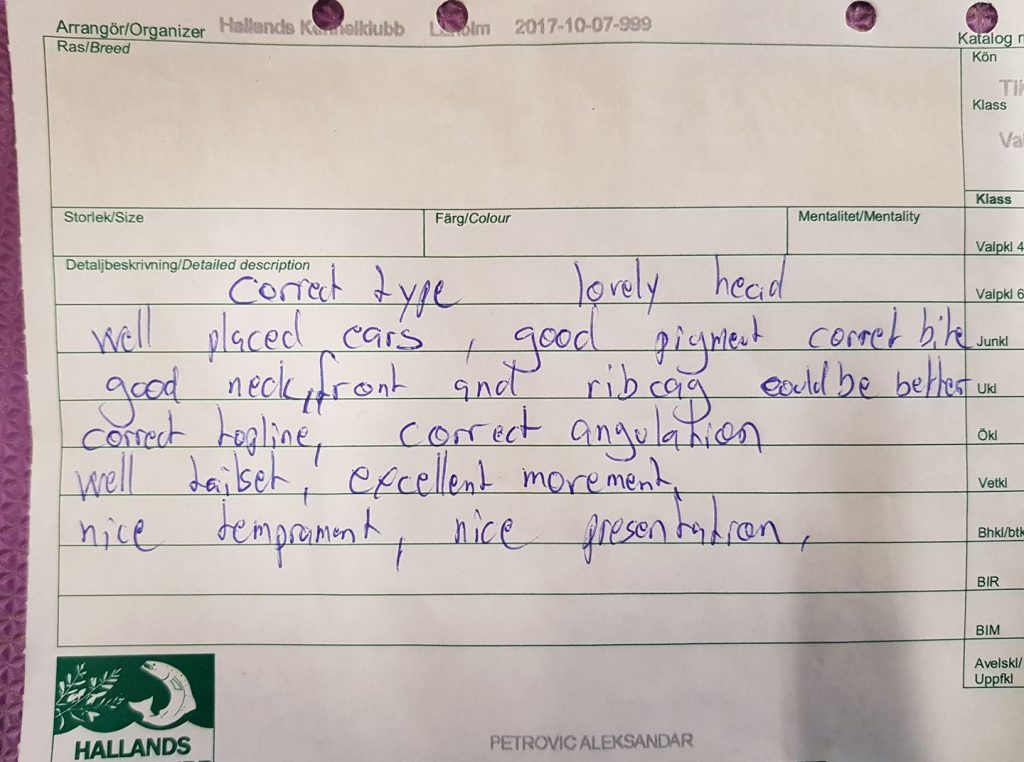 Arrangör/Organizer Hallands Kennelklubb Laholm 2017-10-07-999
Katalog n
Ras/Breed
Kön
Tik
Klass
Val
Klass
Storlek/Size Färg/Colour Mentalitet/Mentality
Valpkl 4
Detaljbeskrivning/Detailed description
correct type lovely head
Valpkl 6
well placed ears , good pigment corret bite
Junkl
good neck, front and ribcag could be better
Ukl
correct topline, correct angulation
Ökl
well tailset, excellent movement,
Vetkl
nice temprament, nice presentation,
Bhkl/btk
BIR
BIM
Avelskl/
Uppfkl
HALLANDS
PETROVIC ALEKSANDAR